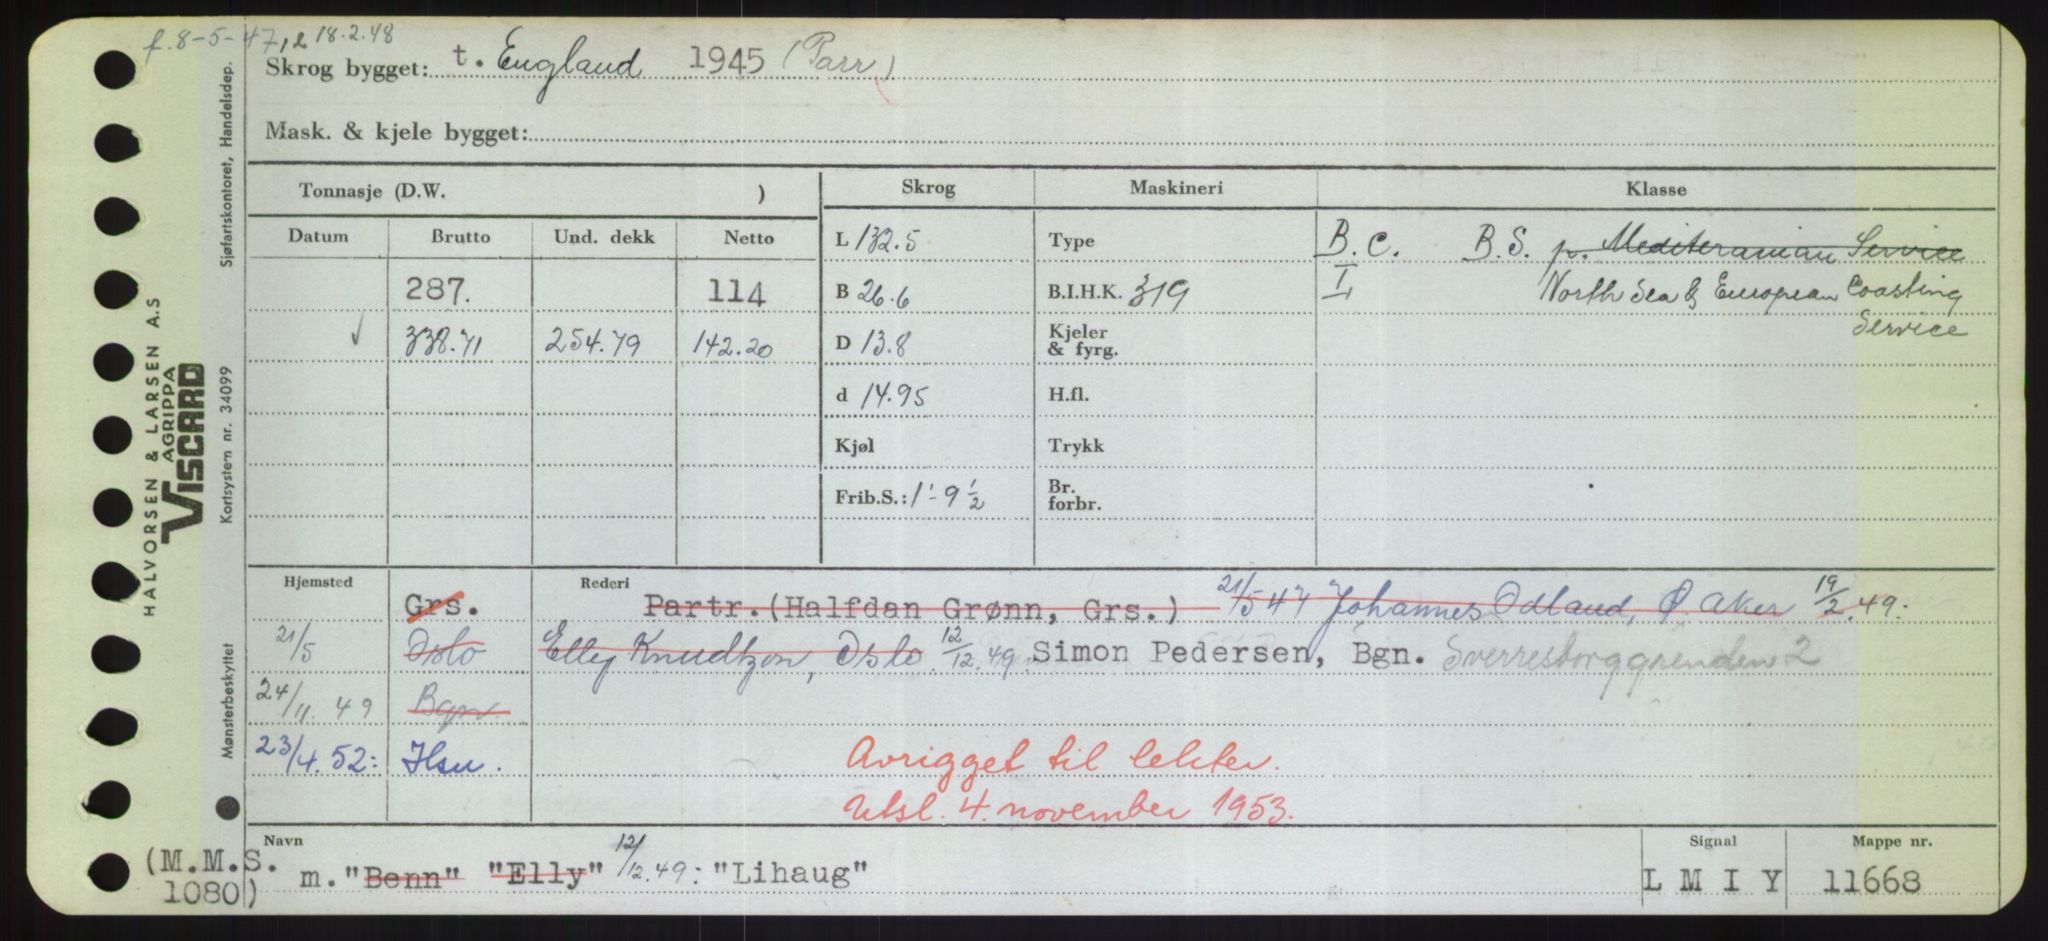 f. 8-5-47, 18.2.48
Skrog bygget: t. England 1945 (Parr)
Mask. & kjele bygget:
Tonnasje (D.W. )
Skrog
Maskineri
Klasse
Datum Brutto Und. dekk Netto
L 132.5
Type
B.C. B.S. p. Mediteranian Service
287. 114
B 26.6
B.I.H.K. 319
I North Sea & European Coasting
Service
✓ 338.71 254.79 142.20
D 13.8
Kjeler
& fyrg.
d 14.95
H.fl.
Kjøl
Trykk
Frib.S.: 1'-9 1/2
Br.
forbr.
Hjemsted Rederi
Grs. Partr.(Halfdan Grønn, Grs.) 21/5 47 Johannes Odland, Ø. Aker 19/2.49.
21/5 Oslo Elley Knudtzon, Oslo 12/12.49 Simon Pedersen, Bgn. Sverresborggrenden 2
24/11.49 Bgn.
23/4.52: Hsu. Avrigget til lekter.
Utsl. 4. november 1953.
Navn Signal Mappe nr.
(M.M.S. 1080) m."Benn" "Elly" 12/12.49: "Lihaug" L M I Y 11668
Sjøfartskontoret, Handelsdep.
Kortsystem nr. 34099
Mønsterbeskyttet
HALVORSEN & LARSEN A.S
AGRIPPA
VISCARD